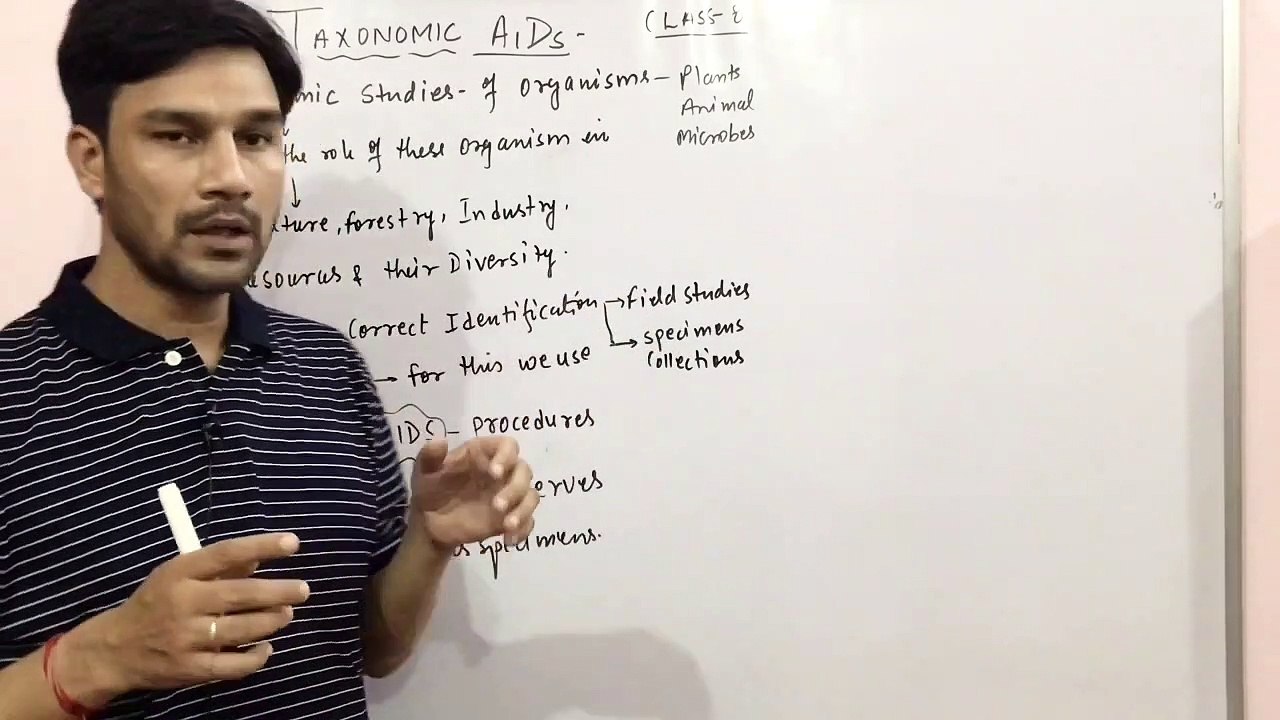 TAXONOMIC AIDs -
CLASS-
mic Studies - of organisms - Plants
Animal
Microbes
the role of these organism in
ture, forestry, Industry.
& their Diversity.
Correct Identification → field studies
→ specimens
Collections
→ for this we use
IDS - procedures
erves
specimens.